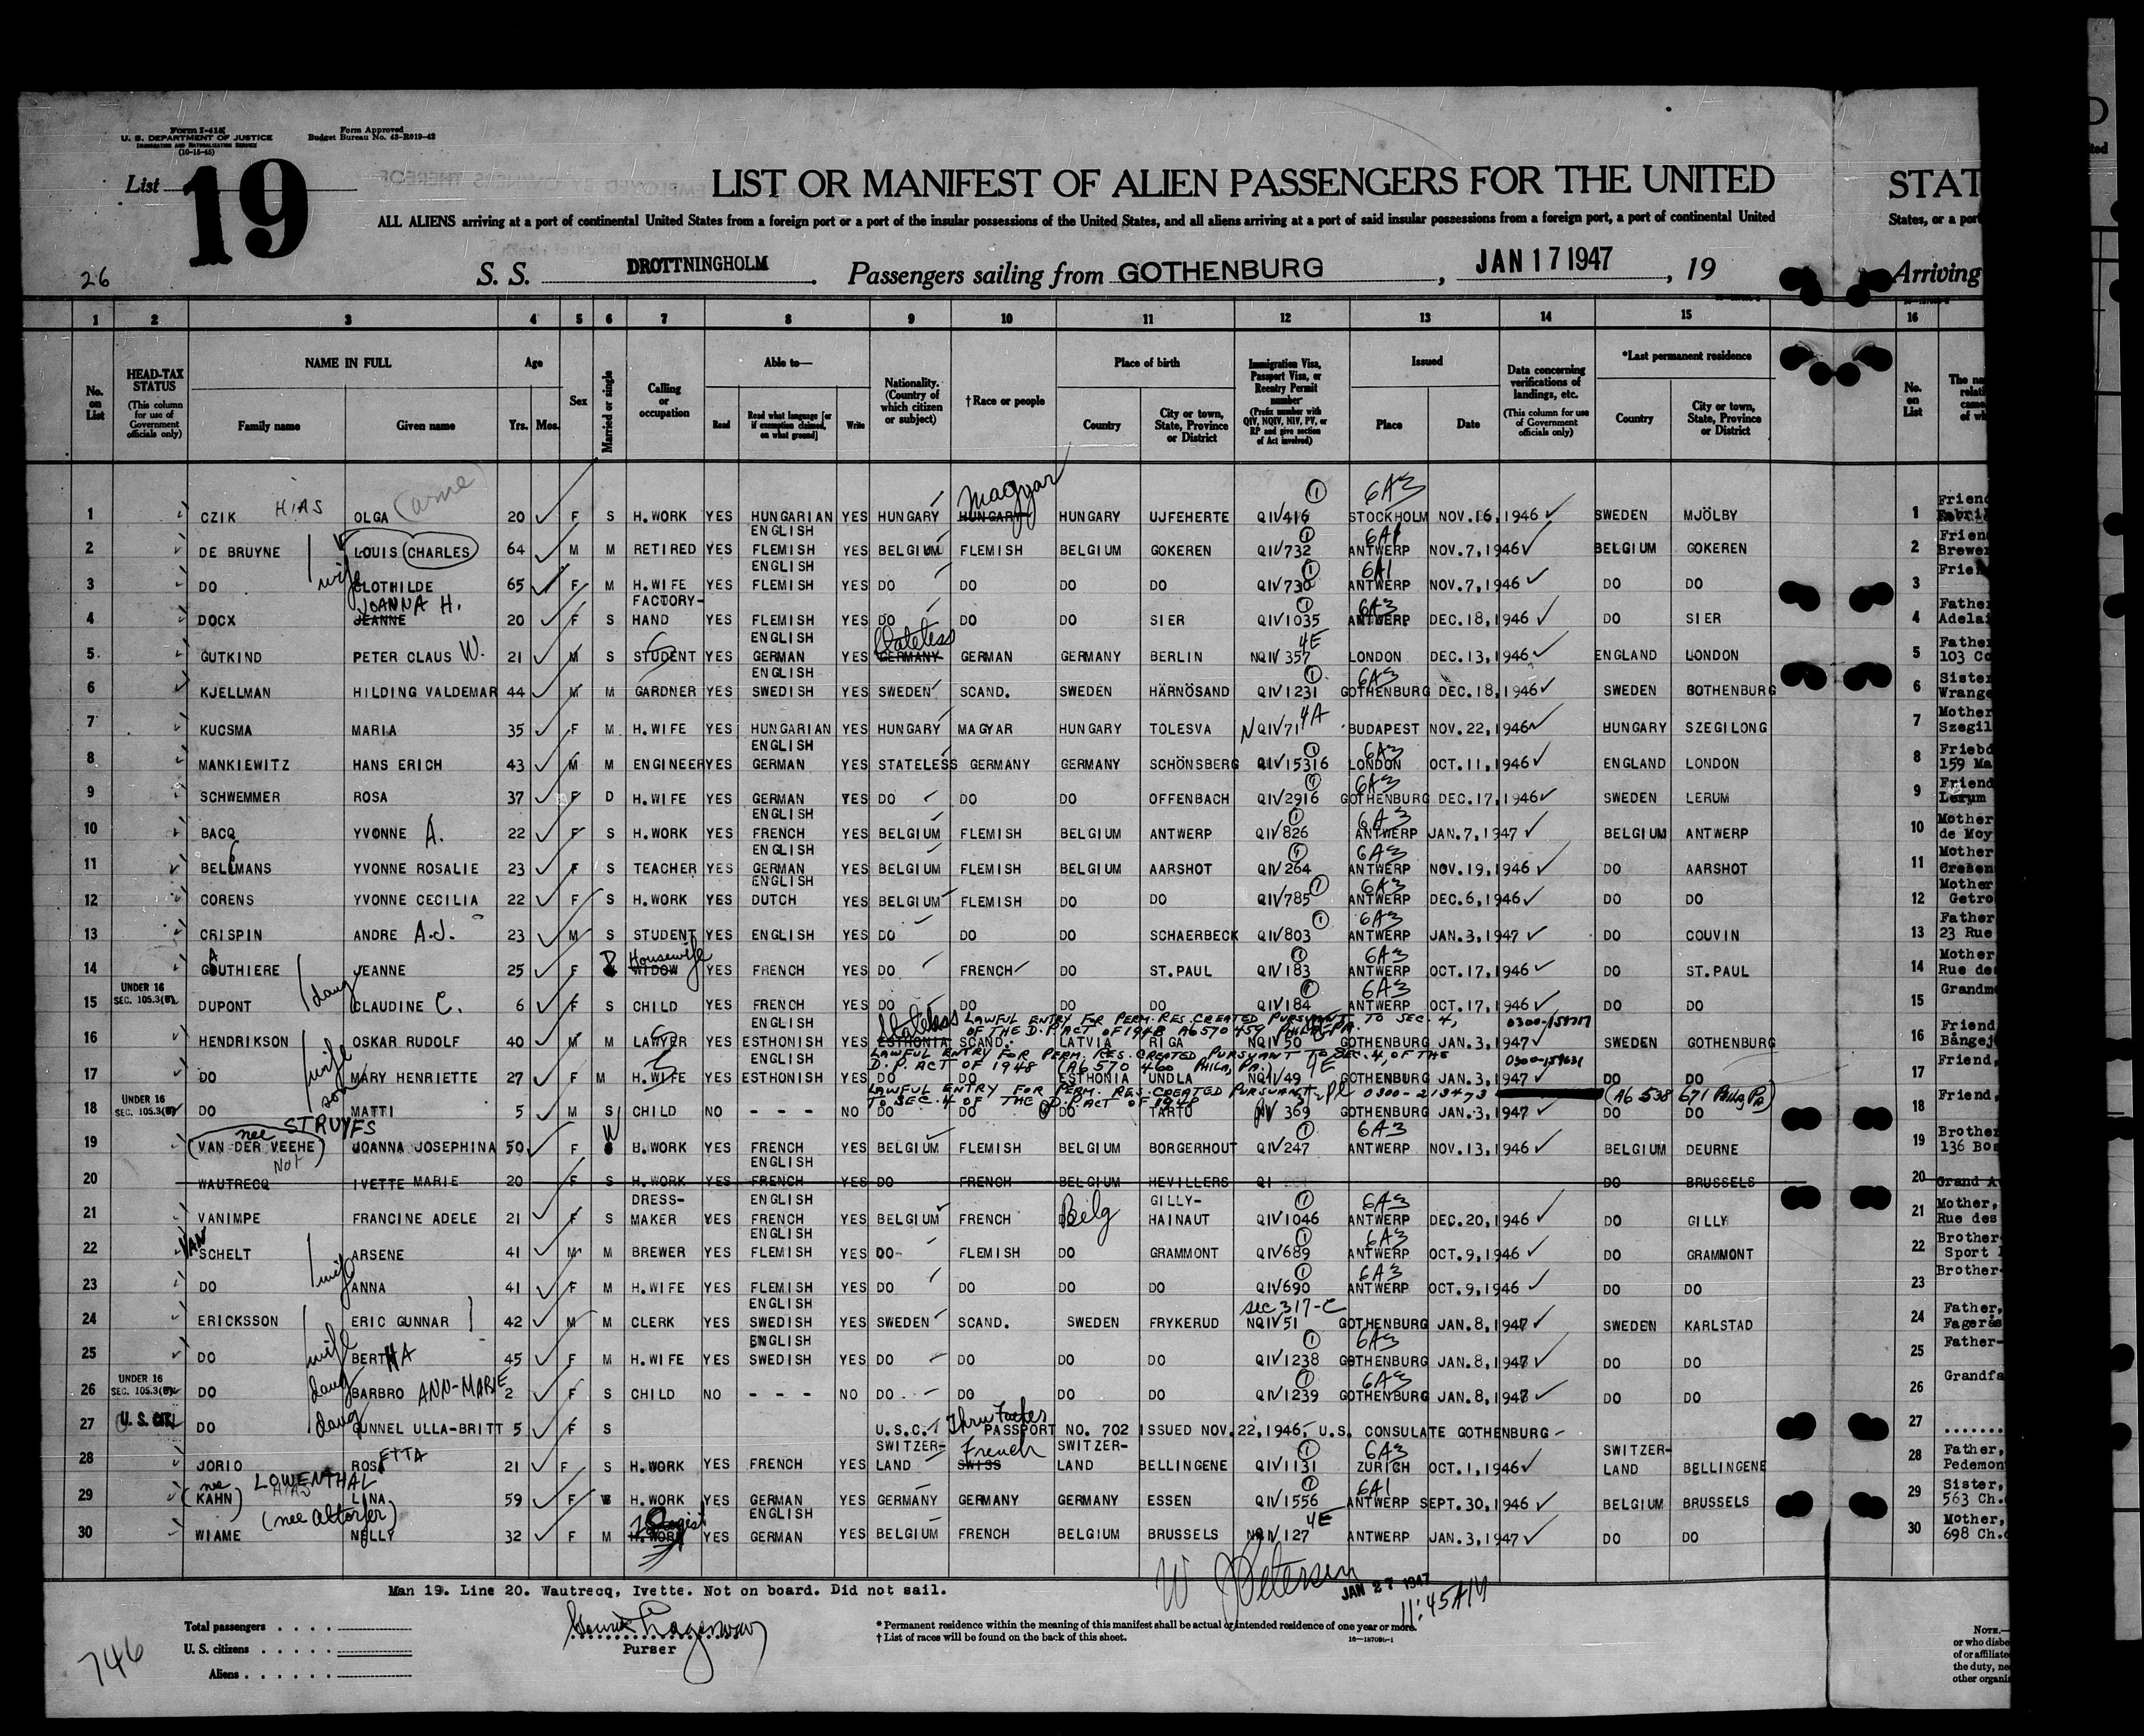 Form I-415
U. S. DEPARTMENT OF JUSTICE
IMMIGRATION AND NATURALIZATION SERVICE
(10-15-45)
Form Approved
Budget Bureau No. 43-R019-42
List 19
LIST OR MANIFEST OF ALIEN PASSENGERS FOR THE UNITED STAT
ALL ALIENS arriving at a port of continental United States from a foreign port or a port of the insular possessions of the United States, and all aliens arriving at a port of said insular possessions from a foreign port, a port of continental United States, or a port
26
S. S. DROTTNINGHOLM. Passengers sailing from GOTHENBURG, JAN 17 1947, 19 Arriving
1 2 3 4 5 6 7 8 9 10 11 12 13 14 15 16
No. on List
HEAD-TAX STATUS (This column for use of Government officials only)
NAME IN FULL Family name Given name
Age Yrs. Mos.
Sex
Married or single
Calling or occupation
Able to— Read Read what language [or if exemption claimed, on what ground] Write
Nationality. (Country of which citizen or subject)
†Race or people
Place of birth Country City or town, State, Province or District
Immigration Visa, Passport Visa, or Reentry Permit number (Prefix number with QIV, NQIV, NIV, PV, or RP and give section of Act involved)
Issued Place Date
Data concerning verifications of landings, etc. (This column for use of Government officials only)
*Last permanent residence Country City or town, State, Province or District
No. on List
1 CZIK HIAS OLGA 20 F S H.WORK YES HUNGARIAN YES HUNGARY HUNGARY Magyar HUNGARY UJFEHERTE QIV416 1 6A3 STOCKHOLM NOV.16,1946 SWEDEN MJÖLBY 1 Friend
2 DE BRUYNE LOUIS CHARLES 64 M M RETIRED YES ENGLISH FLEMISH YES BELGIUM FLEMISH BELGIUM GOKEREN QIV732 1 6A1 ANTWERP NOV.7,1946 BELGIUM GOKEREN 2
3 DO wife CLOTHILDE 65 F M H.WIFE YES ENGLISH FLEMISH YES DO DO DO DO QIV730 1 6A1 ANTWERP NOV.7,1946 DO DO 3
4 DOCX JEANNE JOANNA H. 20 F S FACTORY-HAND YES FLEMISH YES DO DO DO SIER QIV1035 1 6A3 ANTWERP DEC.18,1946 DO SIER 4 Father
5 GUTKIND PETER CLAUS W. 21 M S STUDENT YES ENGLISH GERMAN YES GERMANY Stateless GERMAN GERMANY BERLIN NQIV 357 4E LONDON DEC.13,1946 ENGLAND LONDON 5 Father 103
6 KJELLMAN HILDING VALDEMAR 44 M M GARDNER YES ENGLISH SWEDISH YES SWEDEN SCAND. SWEDEN HÄRNÖSAND QIV1231 1 6A3 GOTHENBURG DEC.18,1946 SWEDEN GOTHENBURG 6 Sister
7 KUCSMA MARIA 35 F M H.WIFE YES HUNGARIAN YES HUNGARY MAGYAR HUNGARY TOLESVA NQIV71 4A BUDAPEST NOV.22,1946 HUNGARY SZEGILONG 7 Mother
8 MANKIEWITZ HANS ERICH 43 M M ENGINEER YES ENGLISH GERMAN YES STATELESS GERMANY GERMANY SCHÖNSBERG QIV15316 1 6A3 LONDON OCT.11,1946 ENGLAND LONDON 8 159
9 SCHWEMMER ROSA 37 F D H.WIFE YES GERMAN YES DO DO DO OFFENBACH QIV2916 1 6A3 GOTHENBURG DEC.17,1946 SWEDEN LERUM 9 Friend Lerum
10 BACQ YVONNE A. 22 F S H.WORK YES ENGLISH FRENCH YES BELGIUM FLEMISH BELGIUM ANTWERP QIV826 1 6A3 ANTWERP JAN.7,1947 BELGIUM ANTWERP 10 Mother de Moy
11 BELEMANS YVONNE ROSALIE 23 F S TEACHER YES ENGLISH GERMAN YES BELGIUM FLEMISH BELGIUM AARSHOT QIV264 1 6A3 ANTWERP NOV.19,1946 DO AARSHOT 11 Mother
12 CORENS YVONNE CECILIA 22 F S H.WORK YES ENGLISH DUTCH YES BELGIUM FLEMISH DO DO QIV785 1 6A3 ANTWERP DEC.6,1946 DO DO 12 Mother
13 CRISPIN ANDRE A.J. 23 M S STUDENT YES ENGLISH YES DO DO DO SCHAERBECK QIV803 1 6A3 ANTWERP JAN.3,1947 DO COUVIN 13 Father 23 Rue
14 GAUTHIERE JEANNE 25 F D WIDOW Housewife YES FRENCH YES DO FRENCH DO ST.PAUL QIV183 1 6A3 ANTWERP OCT.17,1946 DO ST.PAUL 14 Mother Rue des
15 UNDER 16 SEC. 105.3(B) DUPONT daug CLAUDINE C. 6 F S CHILD YES FRENCH YES DO DO DO DO QIV184 1 6A3 ANTWERP OCT.17,1946 DO DO 15
LAWFUL ENTRY FOR PERM. RES. CREATED PURSUANT TO SEC. 4, OF THE D.P. ACT OF 1948 A6570459 PHILA, PA.
16 HENDRIKSON OSKAR RUDOLF 40 M M LAWYER YES ENGLISH ESTHONISH YES ESTHONIA Stateless SCAND. LATVIA RIGA NQIV50 GOTHENBURG JAN.3,1947 SWEDEN GOTHENBURG 16 Friend
LAWFUL ENTRY FOR PERM. RES. CREATED PURSUANT TO SEC. 4, OF THE D.P. ACT OF 1948 (A6570460 PHILA, PA.)
17 DO wife MARY HENRIETTE 27 F M H.WIFE YES ENGLISH ESTHONISH YES DO DO ESTHONIA UNDLA NQIV49 4E GOTHENBURG JAN.3,1947 DO DO 17 Friend,
LAWFUL ENTRY FOR PERM. RES. CREATED PURSUANT TO SEC. 4 OF THE D.P. ACT OF 1948 0300-213473 (A6 538 671 Phila, Pa)
18 UNDER 16 SEC. 105.3(B) DO son MATTI 5 M S CHILD NO - - - NO DO DO DO TARTU 369 GOTHENBURG JAN.3,1947 DO DO 18 Friend,
19 (VAN DER VEEHE) nee STRUYFS JOANNA JOSEPHINA 50 F W H.WORK YES FRENCH YES BELGIUM FLEMISH BELGIUM BORGERHOUT QIV247 1 6A3 ANTWERP NOV.13,1946 BELGIUM DEURNE 19 Brother 136
20 WAUTRECQ IVETTE MARIE 20 F S H.WORK YES ENGLISH FRENCH YES DO FRENCH BELGIUM HEVILLERS QI DO BRUSSELS 20 Grand
21 VANIMPE FRANCINE ADELE 21 F S DRESS-MAKER YES ENGLISH FRENCH YES BELGIUM FRENCH Belg GILLY-HAINAUT QIV1046 1 6A3 ANTWERP DEC.20,1946 DO GILLY 21 Mother, Rue des
22 VAN SCHELT ARSENE 41 M M BREWER YES ENGLISH FLEMISH YES DO FLEMISH DO GRAMMONT QIV689 1 6A3 ANTWERP OCT.9,1946 DO GRAMMONT 22 Brother Sport
23 DO wife ANNA 41 F M H.WIFE YES FLEMISH YES DO DO DO DO QIV690 1 6A3 ANTWERP OCT.9,1946 DO DO 23 Brother-
24 ERICKSSON ERIC GUNNAR 42 M M CLERK YES ENGLISH SWEDISH YES SWEDEN SCAND. SWEDEN FRYKERUD NQIV51 sec 317-C GOTHENBURG JAN.8,1947 SWEDEN KARLSTAD 24 Father, Fagerås
25 DO wife BERTHA 45 F M H.WIFE YES ENGLISH SWEDISH YES DO DO DO DO QIV1238 1 6A3 GOTHENBURG JAN.8,1947 DO DO 25 Father-
26 UNDER 16 SEC. 105.3(B) DO daug BARBRO ANN-MARIE 2 F S CHILD NO - - - NO DO DO DO DO QIV1239 1 6A3 GOTHENBURG JAN.8,1947 DO DO 26
27 U.S. CIT. DO daug GUNNEL ULLA-BRITT 5 F S U.S.C. PASSPORT NO. 702 ISSUED NOV.22,1946, U.S. CONSULATE GOTHENBURG 27 .......
28 JORIO ROSETTA 21 F S H.WORK YES FRENCH YES SWITZER-LAND SWISS French SWITZER-LAND BELLINGENE QIV1131 1 6A3 ZURICH OCT.1,1946 SWITZER-LAND BELLINGENE 28 Father, Pedemon
29 (nee KAHN) LOWENTHAL HIAS LINA 59 F H.WORK YES GERMAN YES GERMANY GERMANY GERMANY ESSEN QIV1556 1 6A1 ANTWERP SEPT.30,1946 BELGIUM BRUSSELS 29 Sister, 563 Ch.
30 WIAME (nee Altorfer) NELLY 32 F M H.WORK YES ENGLISH GERMAN YES BELGIUM FRENCH BELGIUM BRUSSELS NQIV127 4E ANTWERP JAN.3,1947 DO DO 30 Mother, 698 Ch.
Man 19. Line 20. Wautrecq, Ivette. Not on board. Did not sail.
W J Petersen JAN 27 1947 11:45AM
Total passengers
U. S. citizens
Aliens
746
Purser
* Permanent residence within the meaning of this manifest shall be actual or intended residence of one year or more.
† List of races will be found on the back of this sheet.
NOTE.—
or who disbe
of or affiliate
the duty, ne
other organi